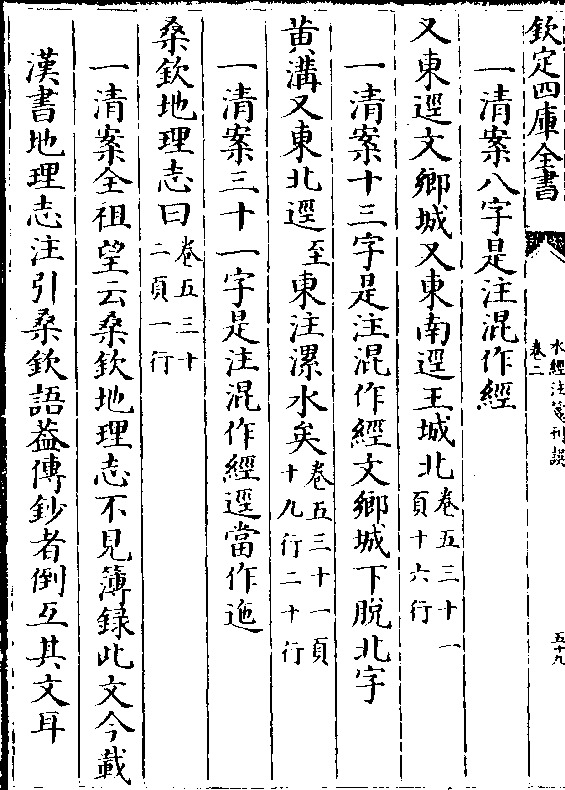 欽定四庫全書
水經注箋刋誤
卷二
五十九
一清案八字是注混作經
又東逕文鄉城又東南逕王城北卷五三十一頁十六行
一清案十三字是注混作經文鄉城下脫北字
黄溝又東北逕至東注漯水矣卷五三十一頁十九行二十行
一清案三十一字是注混作經逕當作迤
桑欽地理志曰卷五三十二頁一行
一清案全祖望云桑欽地理志不見簿録此文今載
漢書地理志注引桑欽語葢傳鈔者倒互其文耳